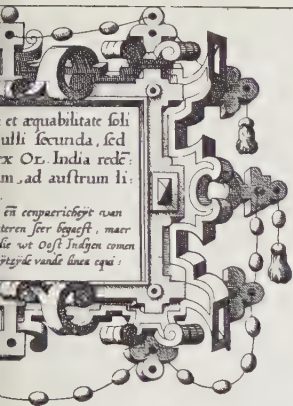 et æquabilitate soli
ulli secunda, sed
x Or. India redē:
m, ad austrum li:
en eenpaericheyt van
teren seer begaeft, maer
die wt Oost Indien comen
ijtzyde vande linea equi: